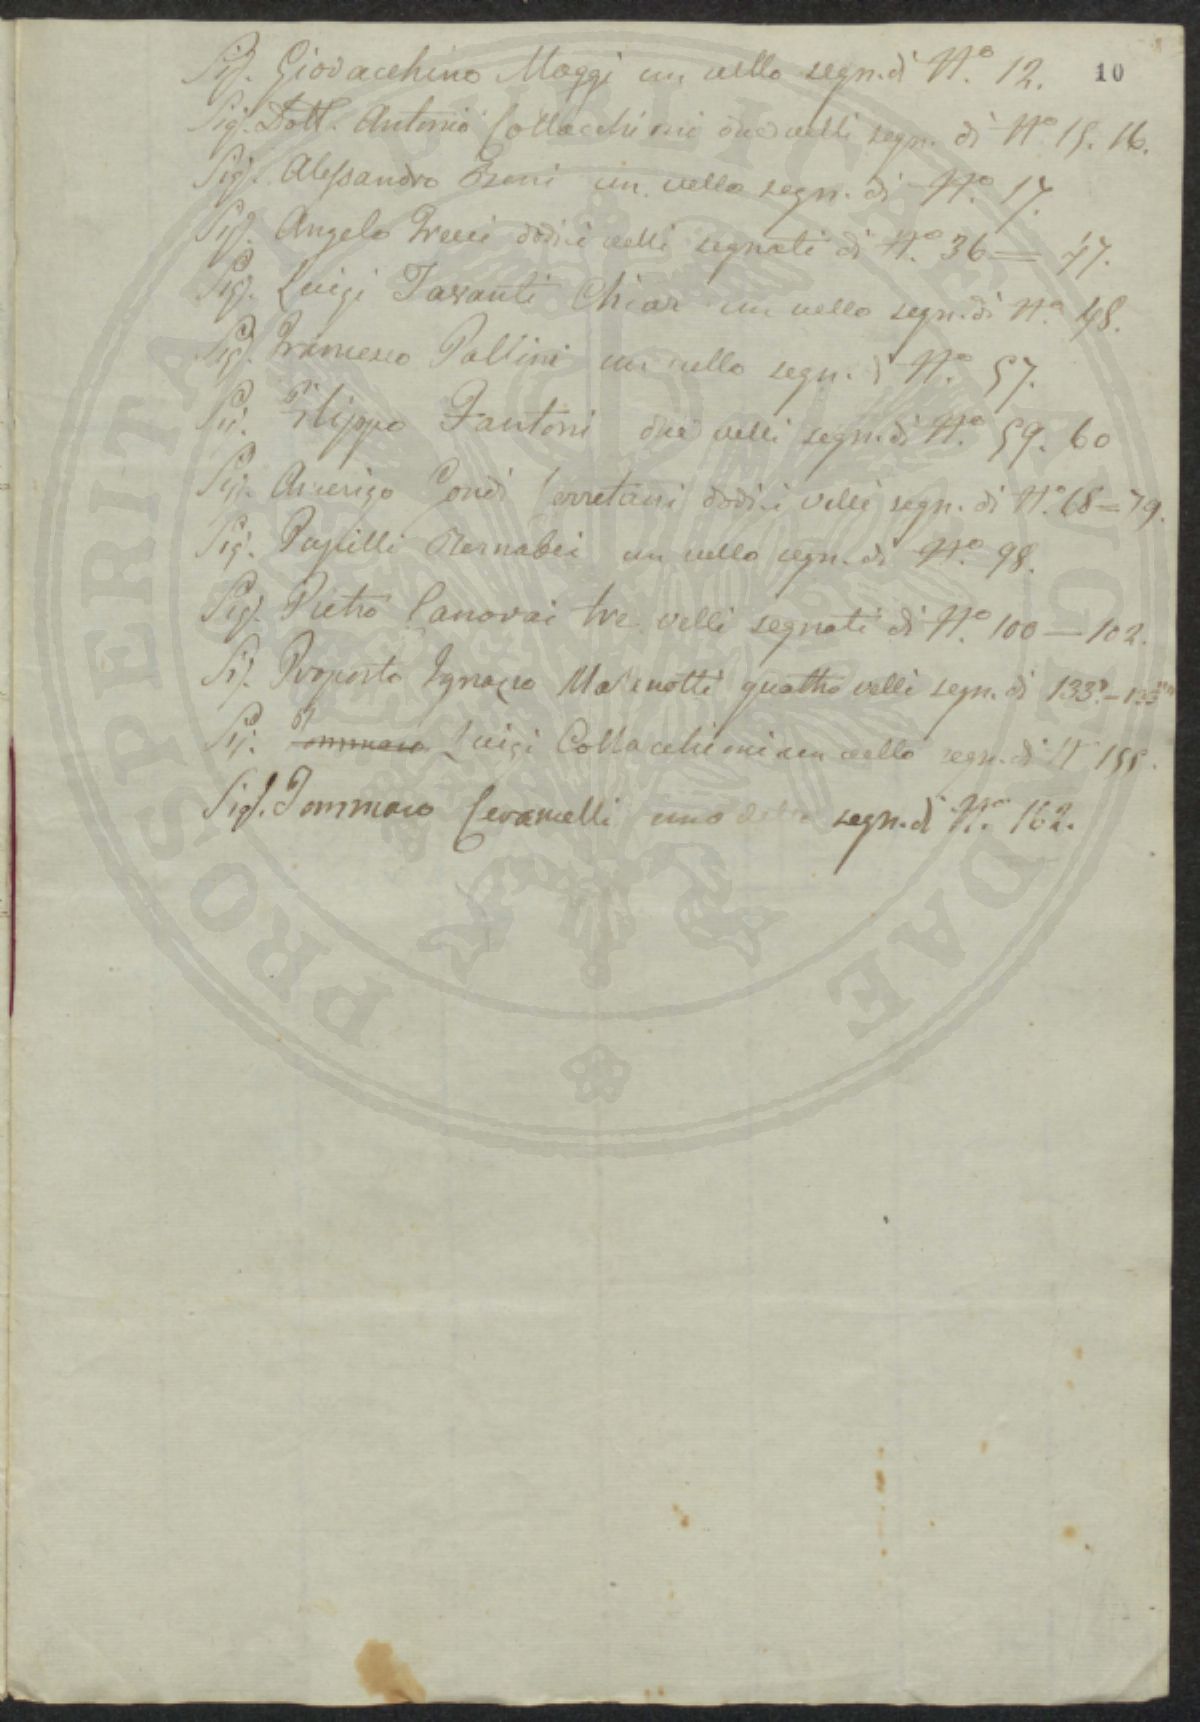 10
Sig. Giovacchino Maggi un vello segn. di N.o 12.
Sig. Dott. Antonio Collacchioni due velli segn. di N.o 15. 16.
Sig. Alessandro un vello segn. di N.o 17.
Sig. Angelo dodici velli segnati di N.o 36 = 47.
Sig. Luigi Taranti Chiar un vello segn. di N.o 48.
Sig. Francesco Pallini un vello segn. di N.o 57.
Sig. Filippo Fantoni due velli segn. di N.o 59. 60
Sig. Amerigo Condi Cerretani dodici velli segn. di N.o 68 = 79.
Sig. Papilli Bernabei un vello segn. di N.o 98.
Sig. Pietro Canovai tre velli segnati di N.o 100 — 102.
Sig. Proposto Ignazio Malenotti quattro velli segn. di 133.
Sig. Tommaso Luigi Collacchioni un vello segn. di N 155.
Sig. Tommaso Ceramelli uno segn. di N.o 162.
PROSPERITATI PUBLICAE AUGENDAE